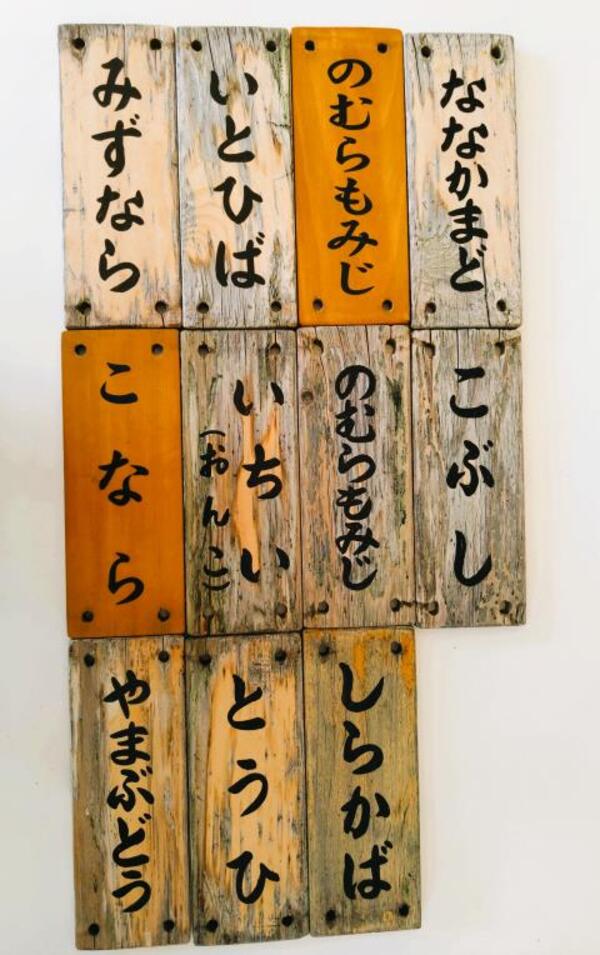 ななかまど
のむらもみじ
いとひば
みずなら
こぶし
のむらもみじ
いちい
(おんこ)
こなら
しらかば
とうひ
やまぶどう